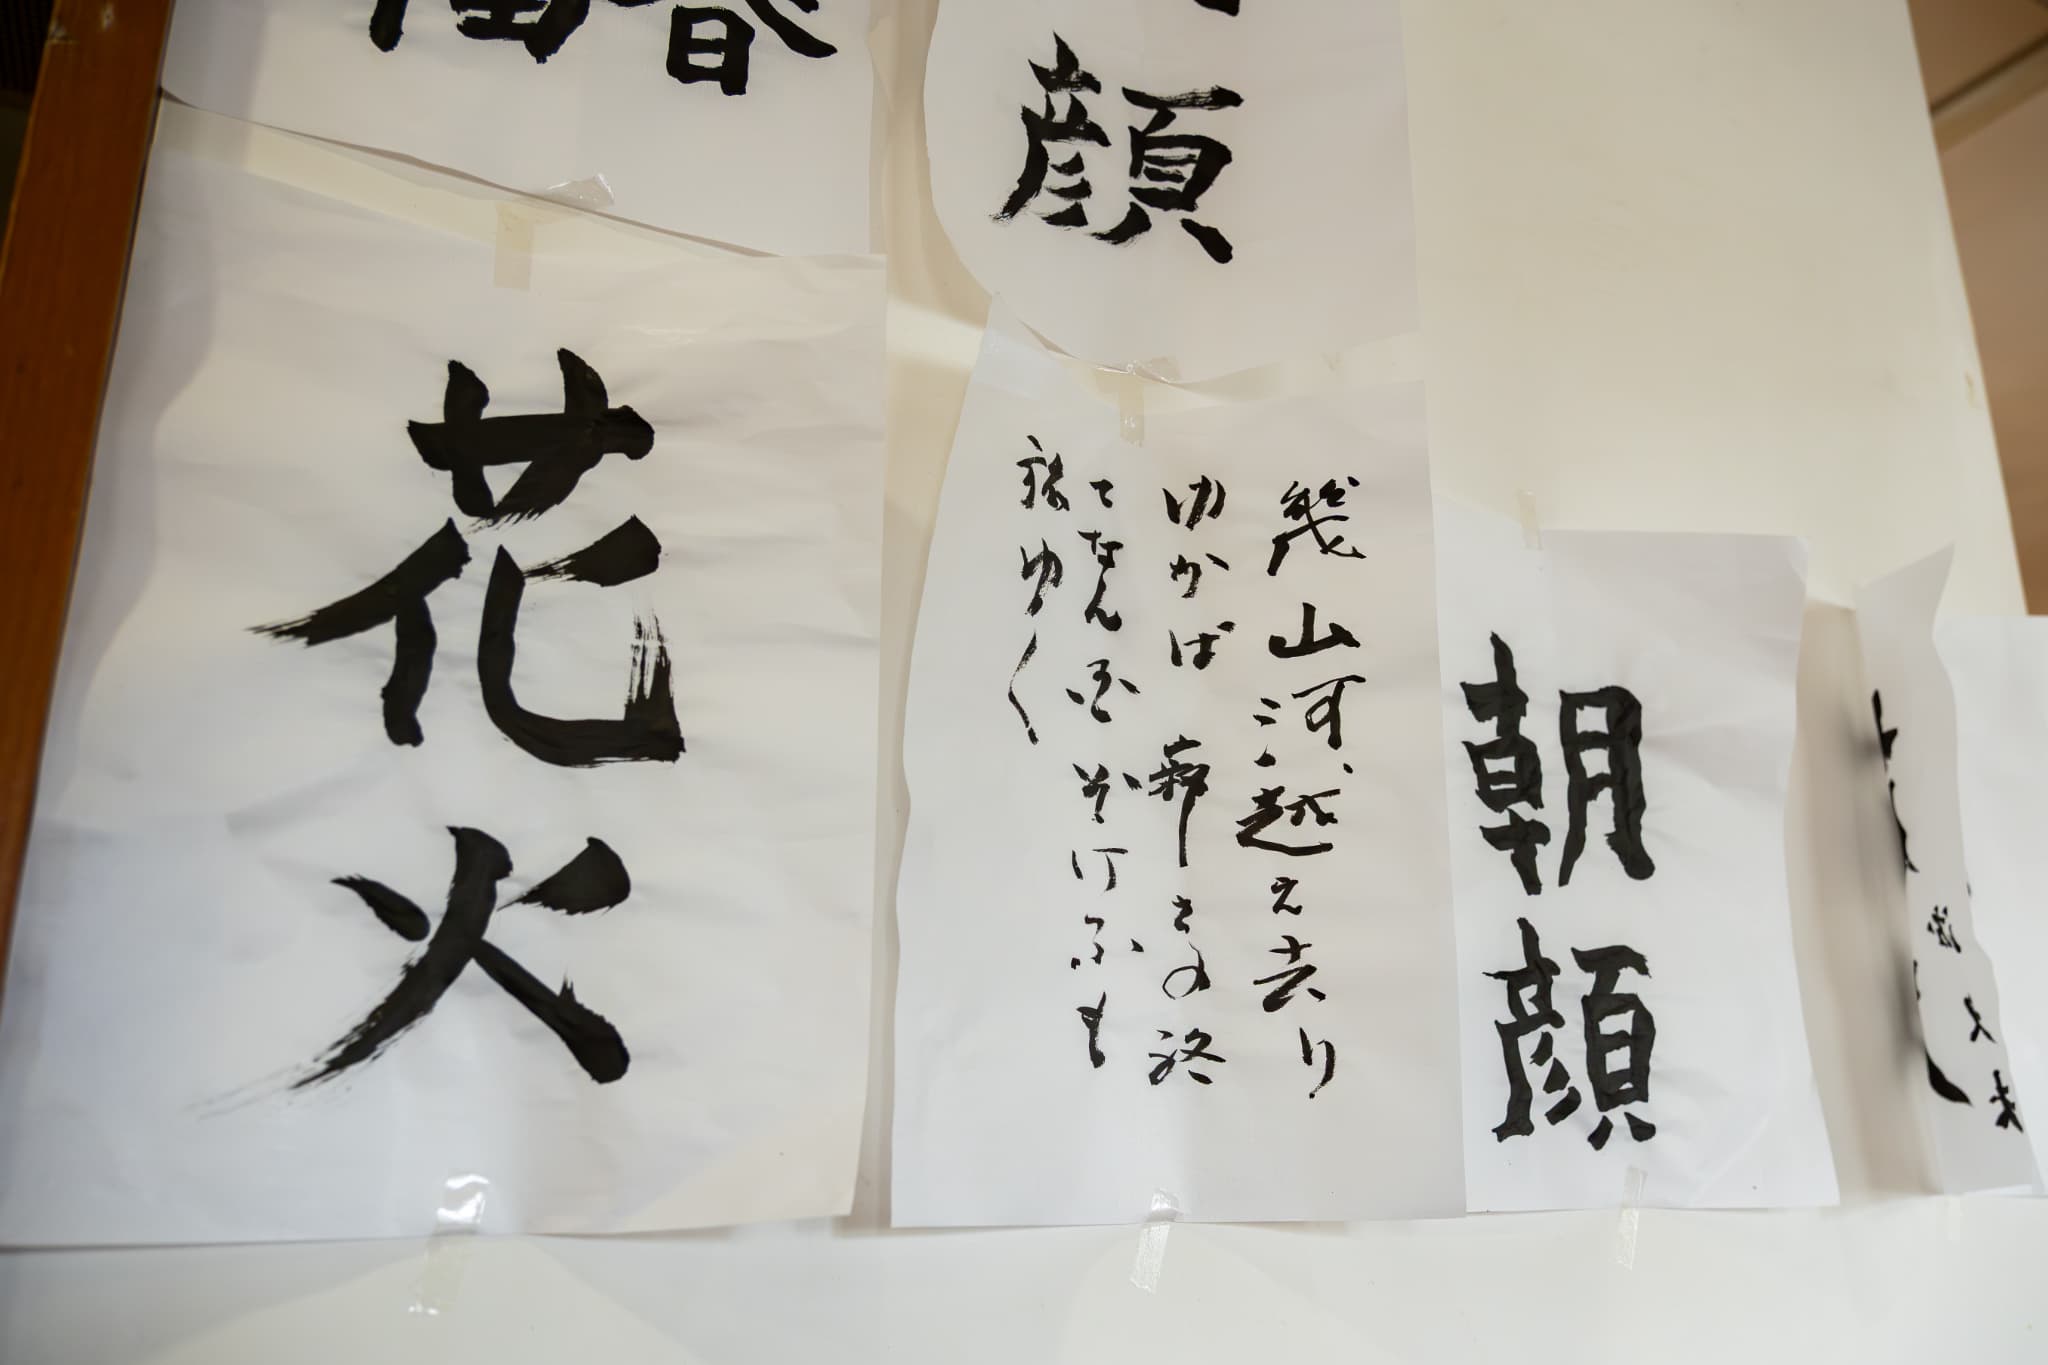 春
顔
花火
朝顔
幾山河越え去り
ゆかば寂しさの終
てなん国ぞけふも
旅ゆく